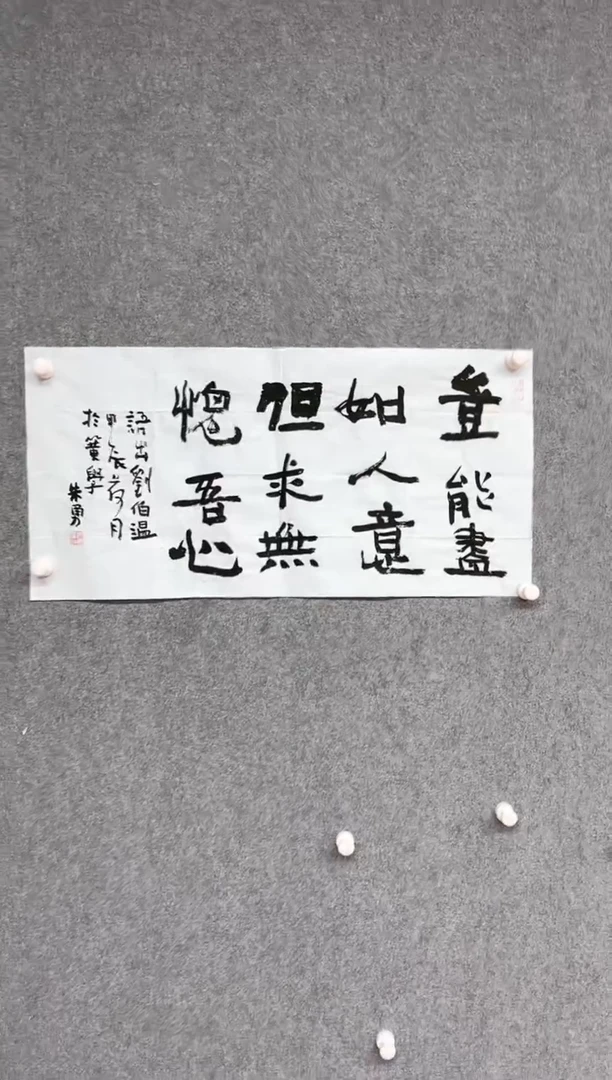 豈能盡
如人意
但求無
愧吾心
語出劉伯溫
甲辰荷月
於簧學
朱勇